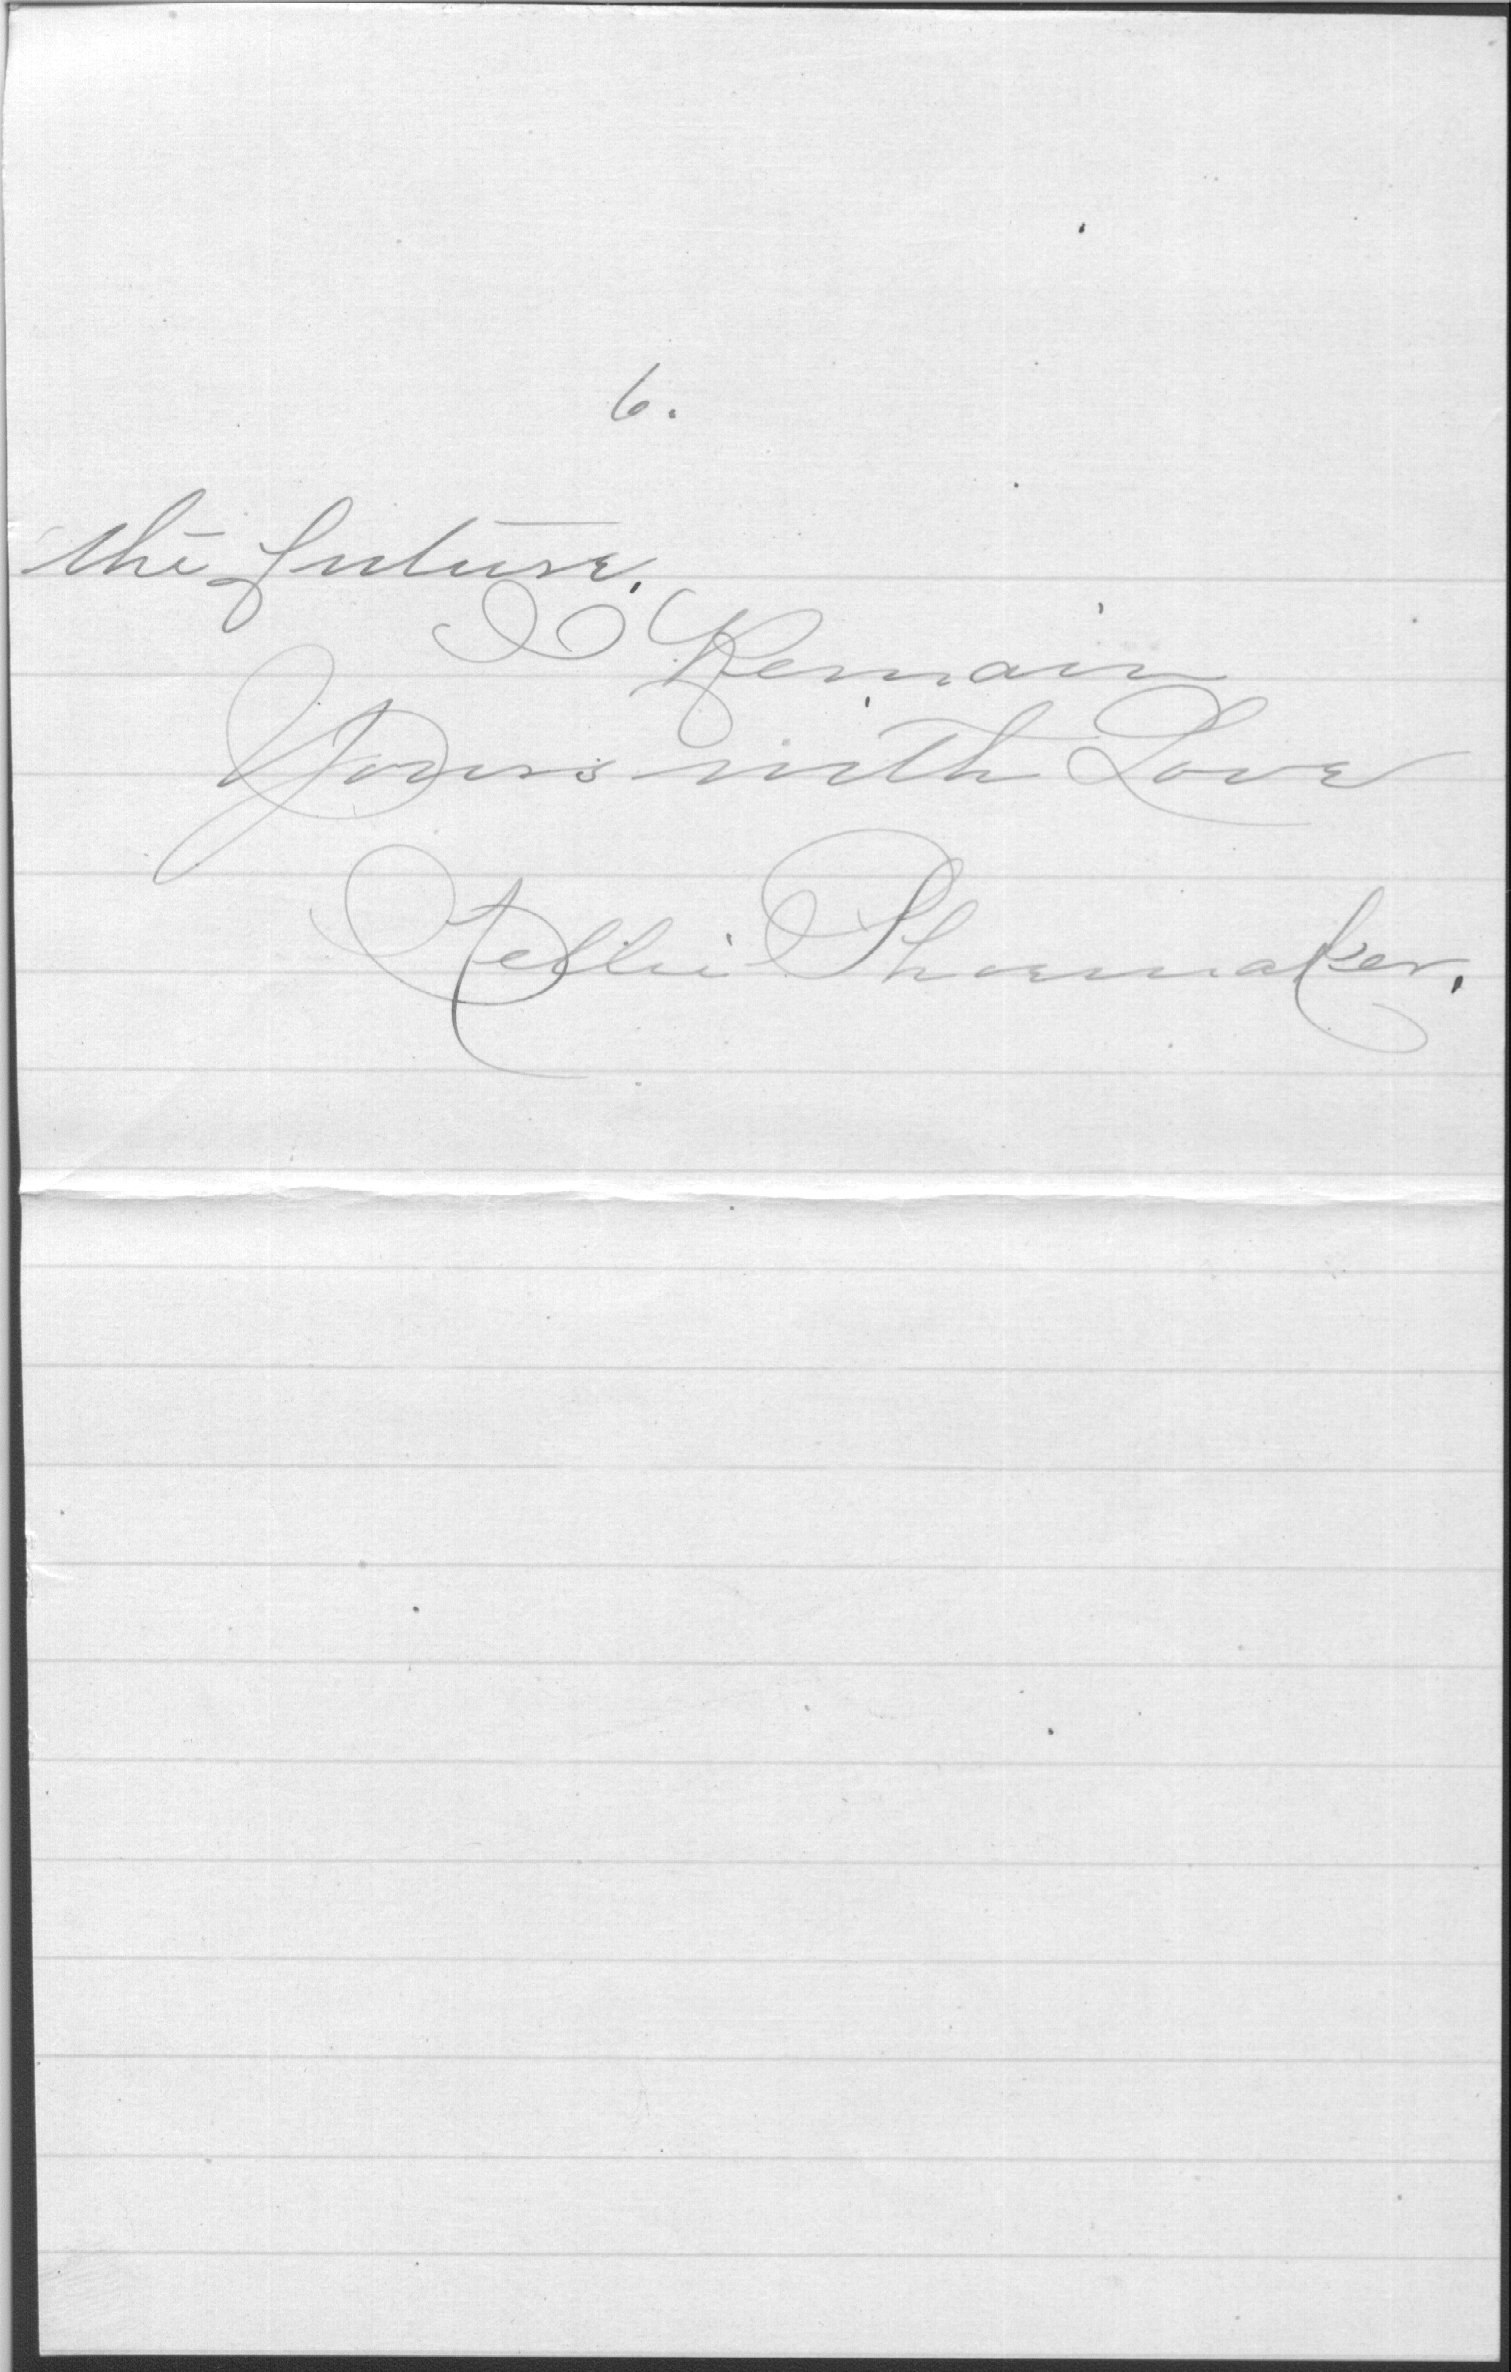 6.
the future.
I Remain
Yours with Love
Nellie Shoemaker.